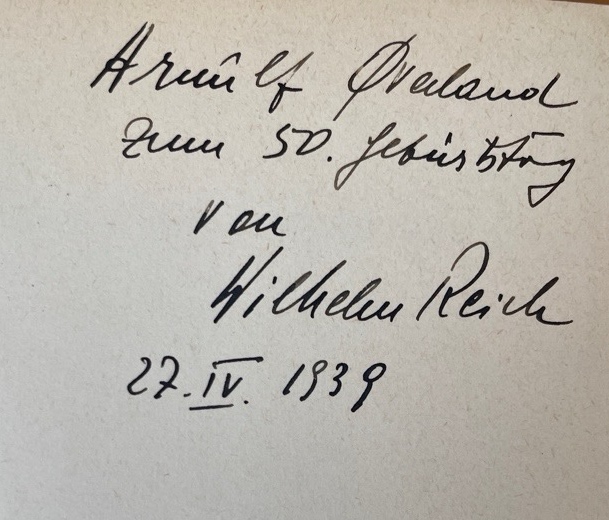 Arnulf Øverland
zum 50. Geburtstag
von
Wilhelm Reich
27. IV. 1939